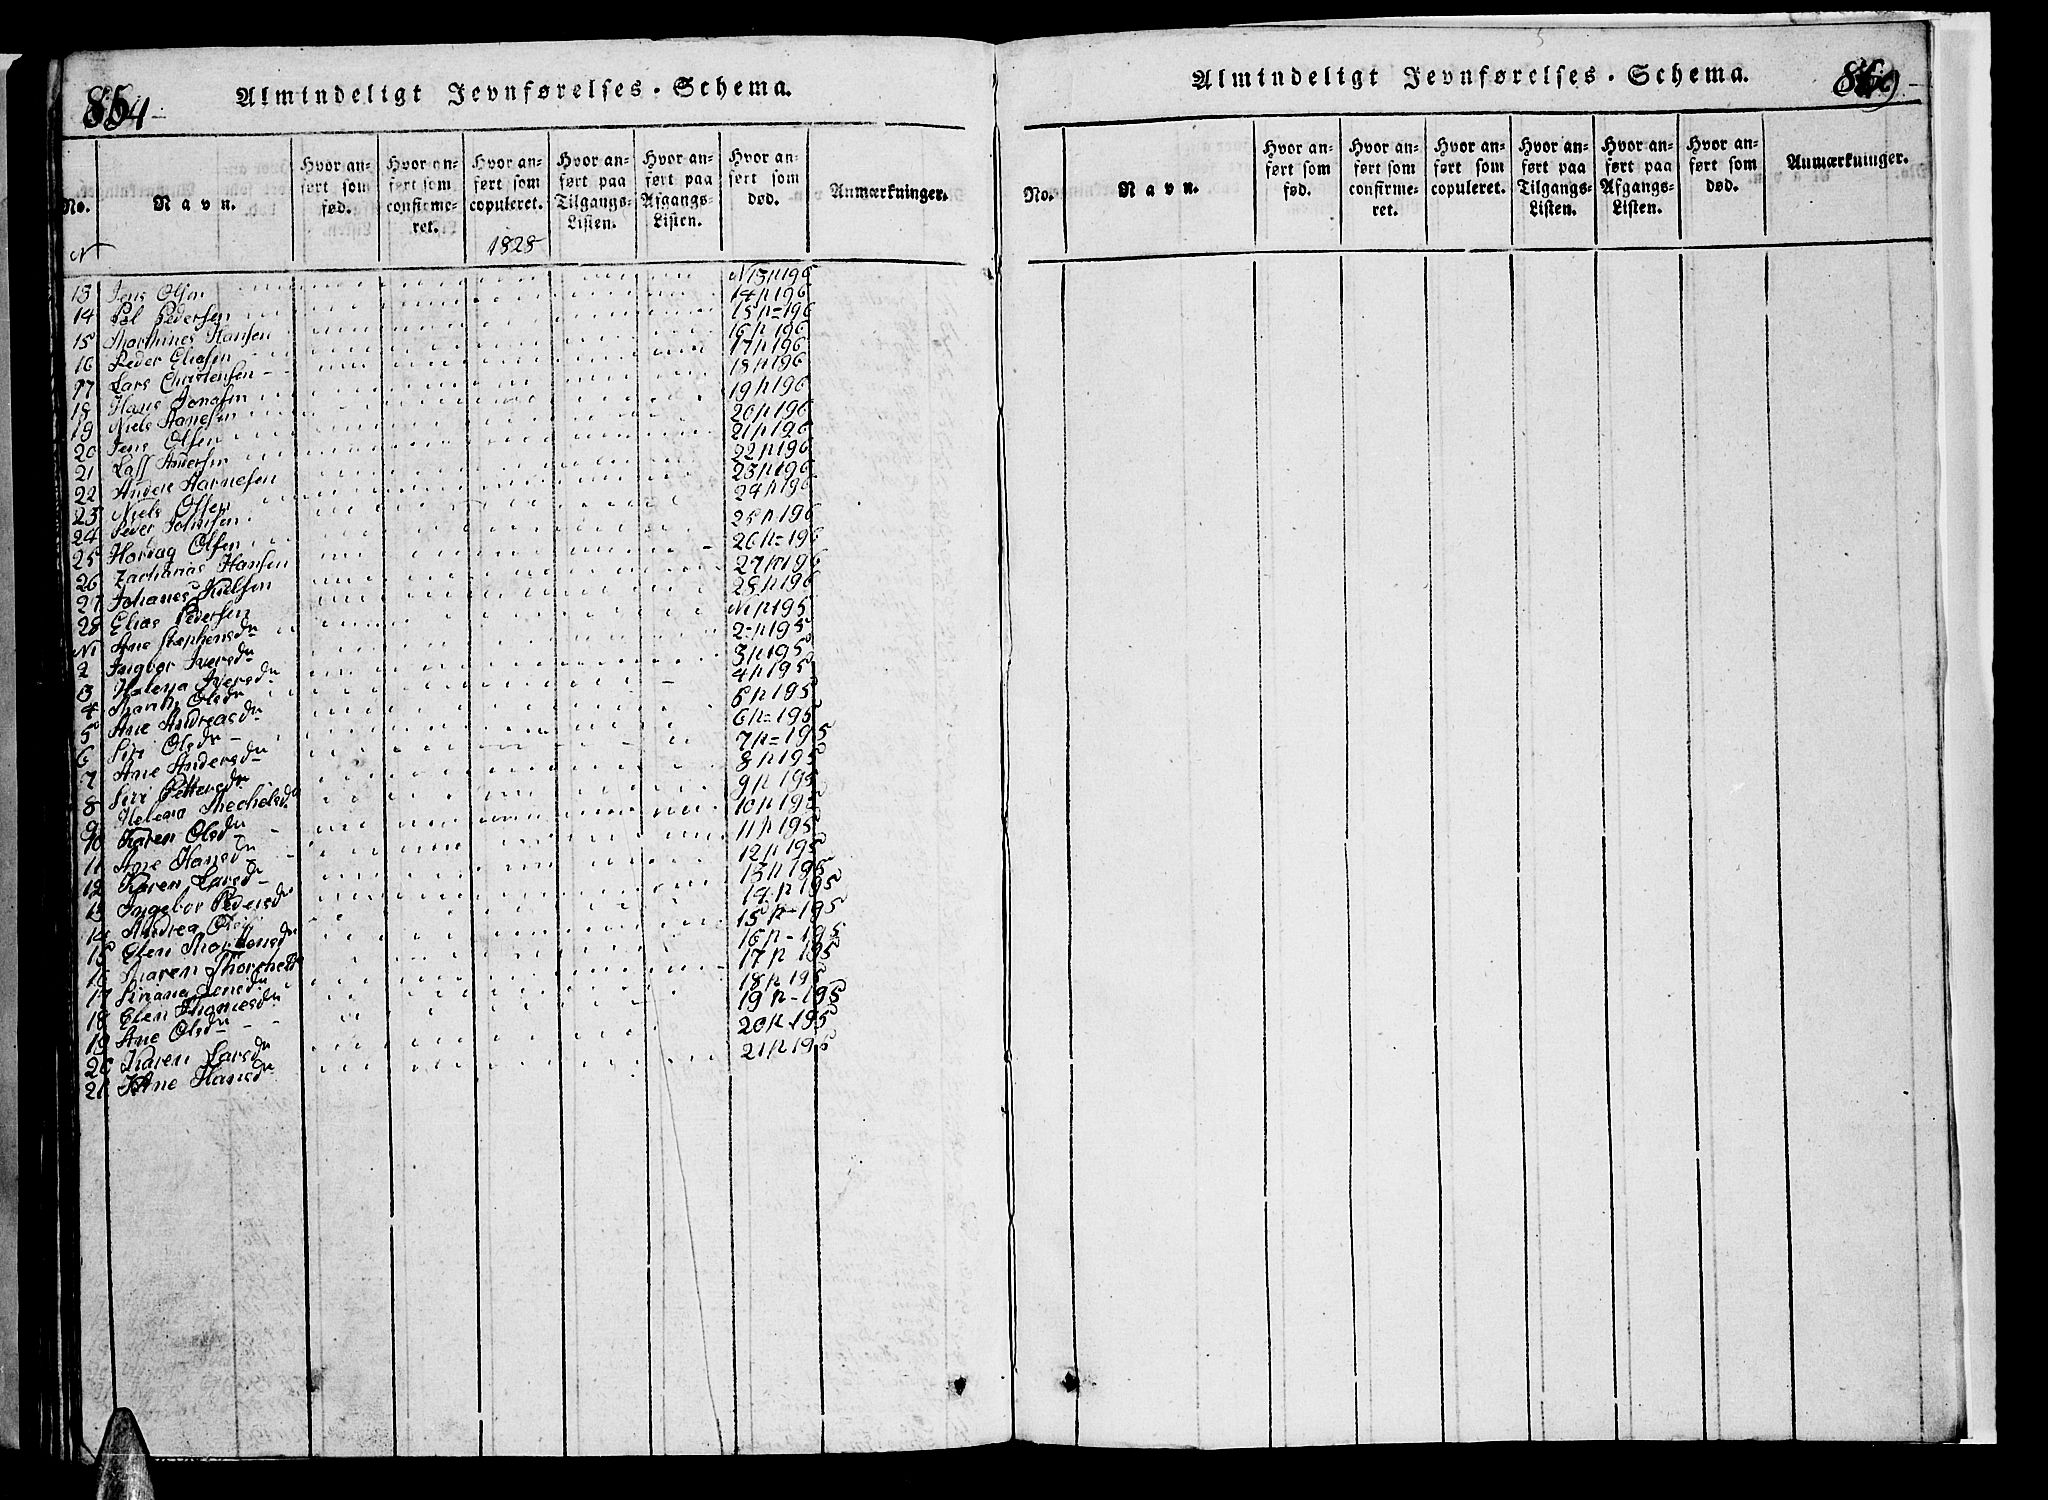 854
Almindeligt Jevnførelses-Schema.
No. Navn. Hvor anført som fød. Hvor anført som confirmeret. Hvor anført som copuleret. Hvor anført paa Tilgangs-Listen. Hvor anført paa Afgangs-Listen. Hvor anført som død. Anmærkninger.
N 1828
13 Jens Olsen N 13 p 196
14 Pål Pedersen 14 p 196
15 Marthines Hansen 15 p = 196
16 Peder Eliasen 16 p 196
17 Lars Christensen 17 p 196
18 Hans Jonasen 18 p 196
19 Niels Hansen 19 p 196
20 Jens Olsen 20 p 196
21 Lass Andersen 21 p 196
22 Anders Aarnesen 22 p 196
23 Niels Olsen 23 p 196
24 Peder Johnsen 24 p 196
25 Harvag Olsen 25 p 196
26 Zacharias Hansen 26 p = 196
27 Johanes Nielsen 27 p 196
28 Elias Pedersen 28 p 196
N1 Ane Stephensdr N1 p 195
2 Ingbor Iversdr 2 = p 195
3 Halena Iversdr 3 p 195
4 Marith Olsdr 4 p 195
5 Ane Andreasdr 5 p 195
6 Siri Olsdr 6 p = 195
7 Ane Andersdr 7 p = 195
8 Siri Pettersdr 8 p 195
9 Helena Mechelsdr 9 p 195
10 Karen Olsdr 10 p 195
11 Ane Hansdr 11 p 195
12 Karen Larsdr 12 p 195
13 Ingebor Pedersdr 13 p 195
14 Andrea 14 p 195
15 Elen Mortensdr 15 p - 195
16 Maren 16 p - 195
17 Jensdr 17 p 195
18 Elen Thomesdr 18 p 195
19 Ane Olsdr 19 p - 195
20 Karen Larsdr 20 p 195
21 Ane Hansdr 21 p 195
Almindeligt Jevnførelses-Schema.
No. Navn. Hvor anført som fød. Hvor anført som confirmeret. Hvor anført som copuleret. Hvor anført paa Tilgangs-Listen. Hvor anført paa Afgangs-Listen. Hvor anført som død. Anmærkninger.